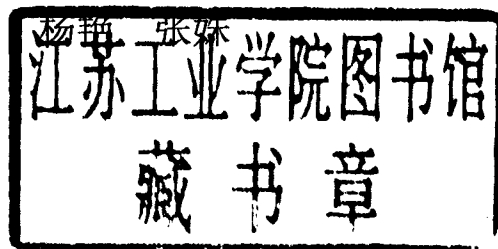 杨艳 张姝
江苏工业学院图书馆
藏书章